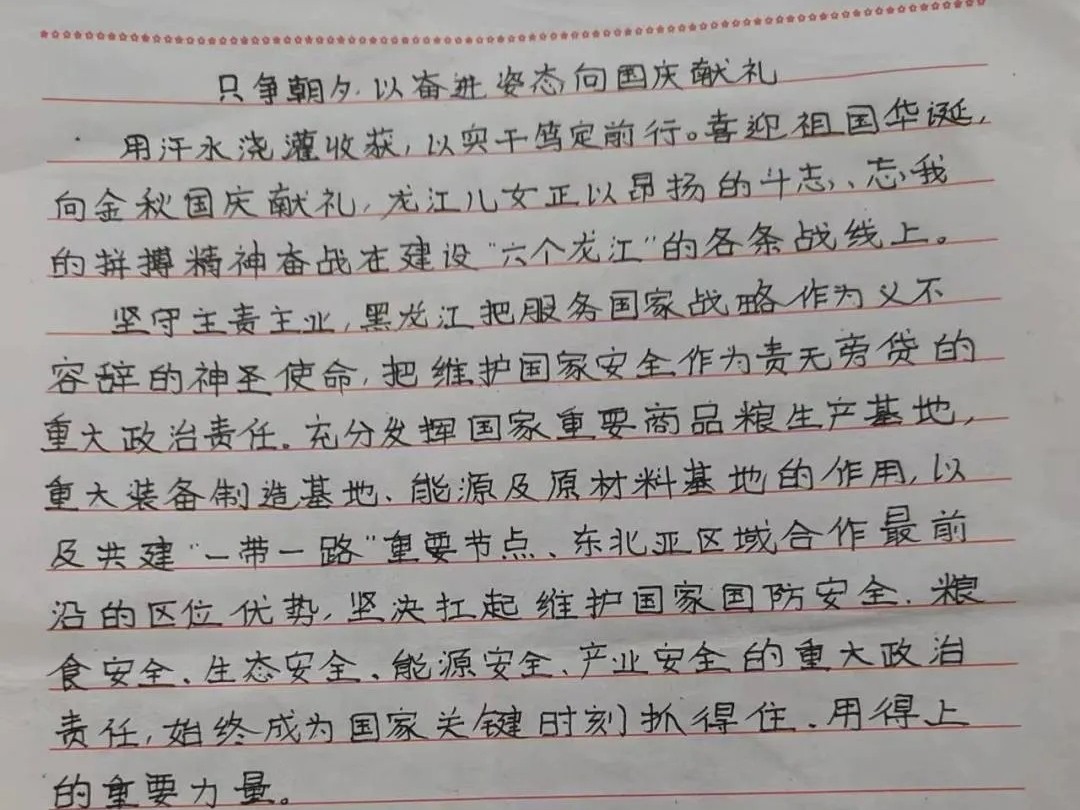 只争朝夕.以奋进姿态向国庆献礼
用汗水浇灌收获,以实干笃定前行。喜迎祖国华诞,
向金秋国庆献礼,龙江儿女正以昂扬的斗志、忘我
的拼搏精神奋战在建设“六个龙江”的各条战线上。
坚守主责主业,黑龙江把服务国家战略作为义不
容辞的神圣使命,把维护国家安全作为责无旁贷的
重大政治责任。充分发挥国家重要商品粮生产基地,
重大装备制造基地、能源及原材料基地的作用,以
及共建“一带一路”重要节点、东北亚区域合作最前
沿的区位优势,坚决扛起维护国家国防安全、粮
食安全、生态安全、能源安全、产业安全的重大政治
责任,始终成为国家关键时刻抓得住、用得上
的重要力量。